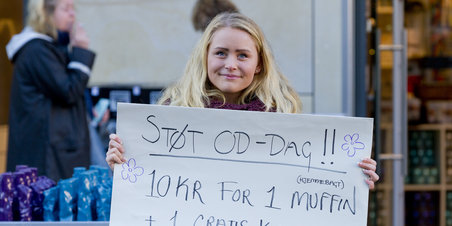 STØT OD-DAG!!
10 KR FOR 1 MUFFIN
(HJEMMEBAGT)
+ 1 GRATIS